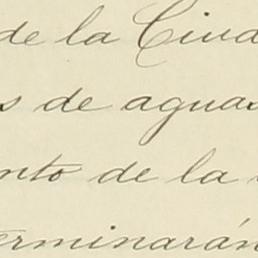 de la Ciud
s de aguas
nto de la
erminarán